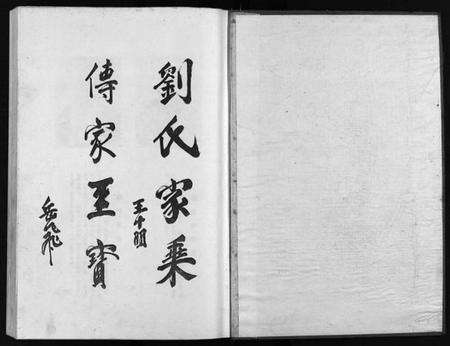 劉氏家乘
王十朋
傳家至寶
岳飛